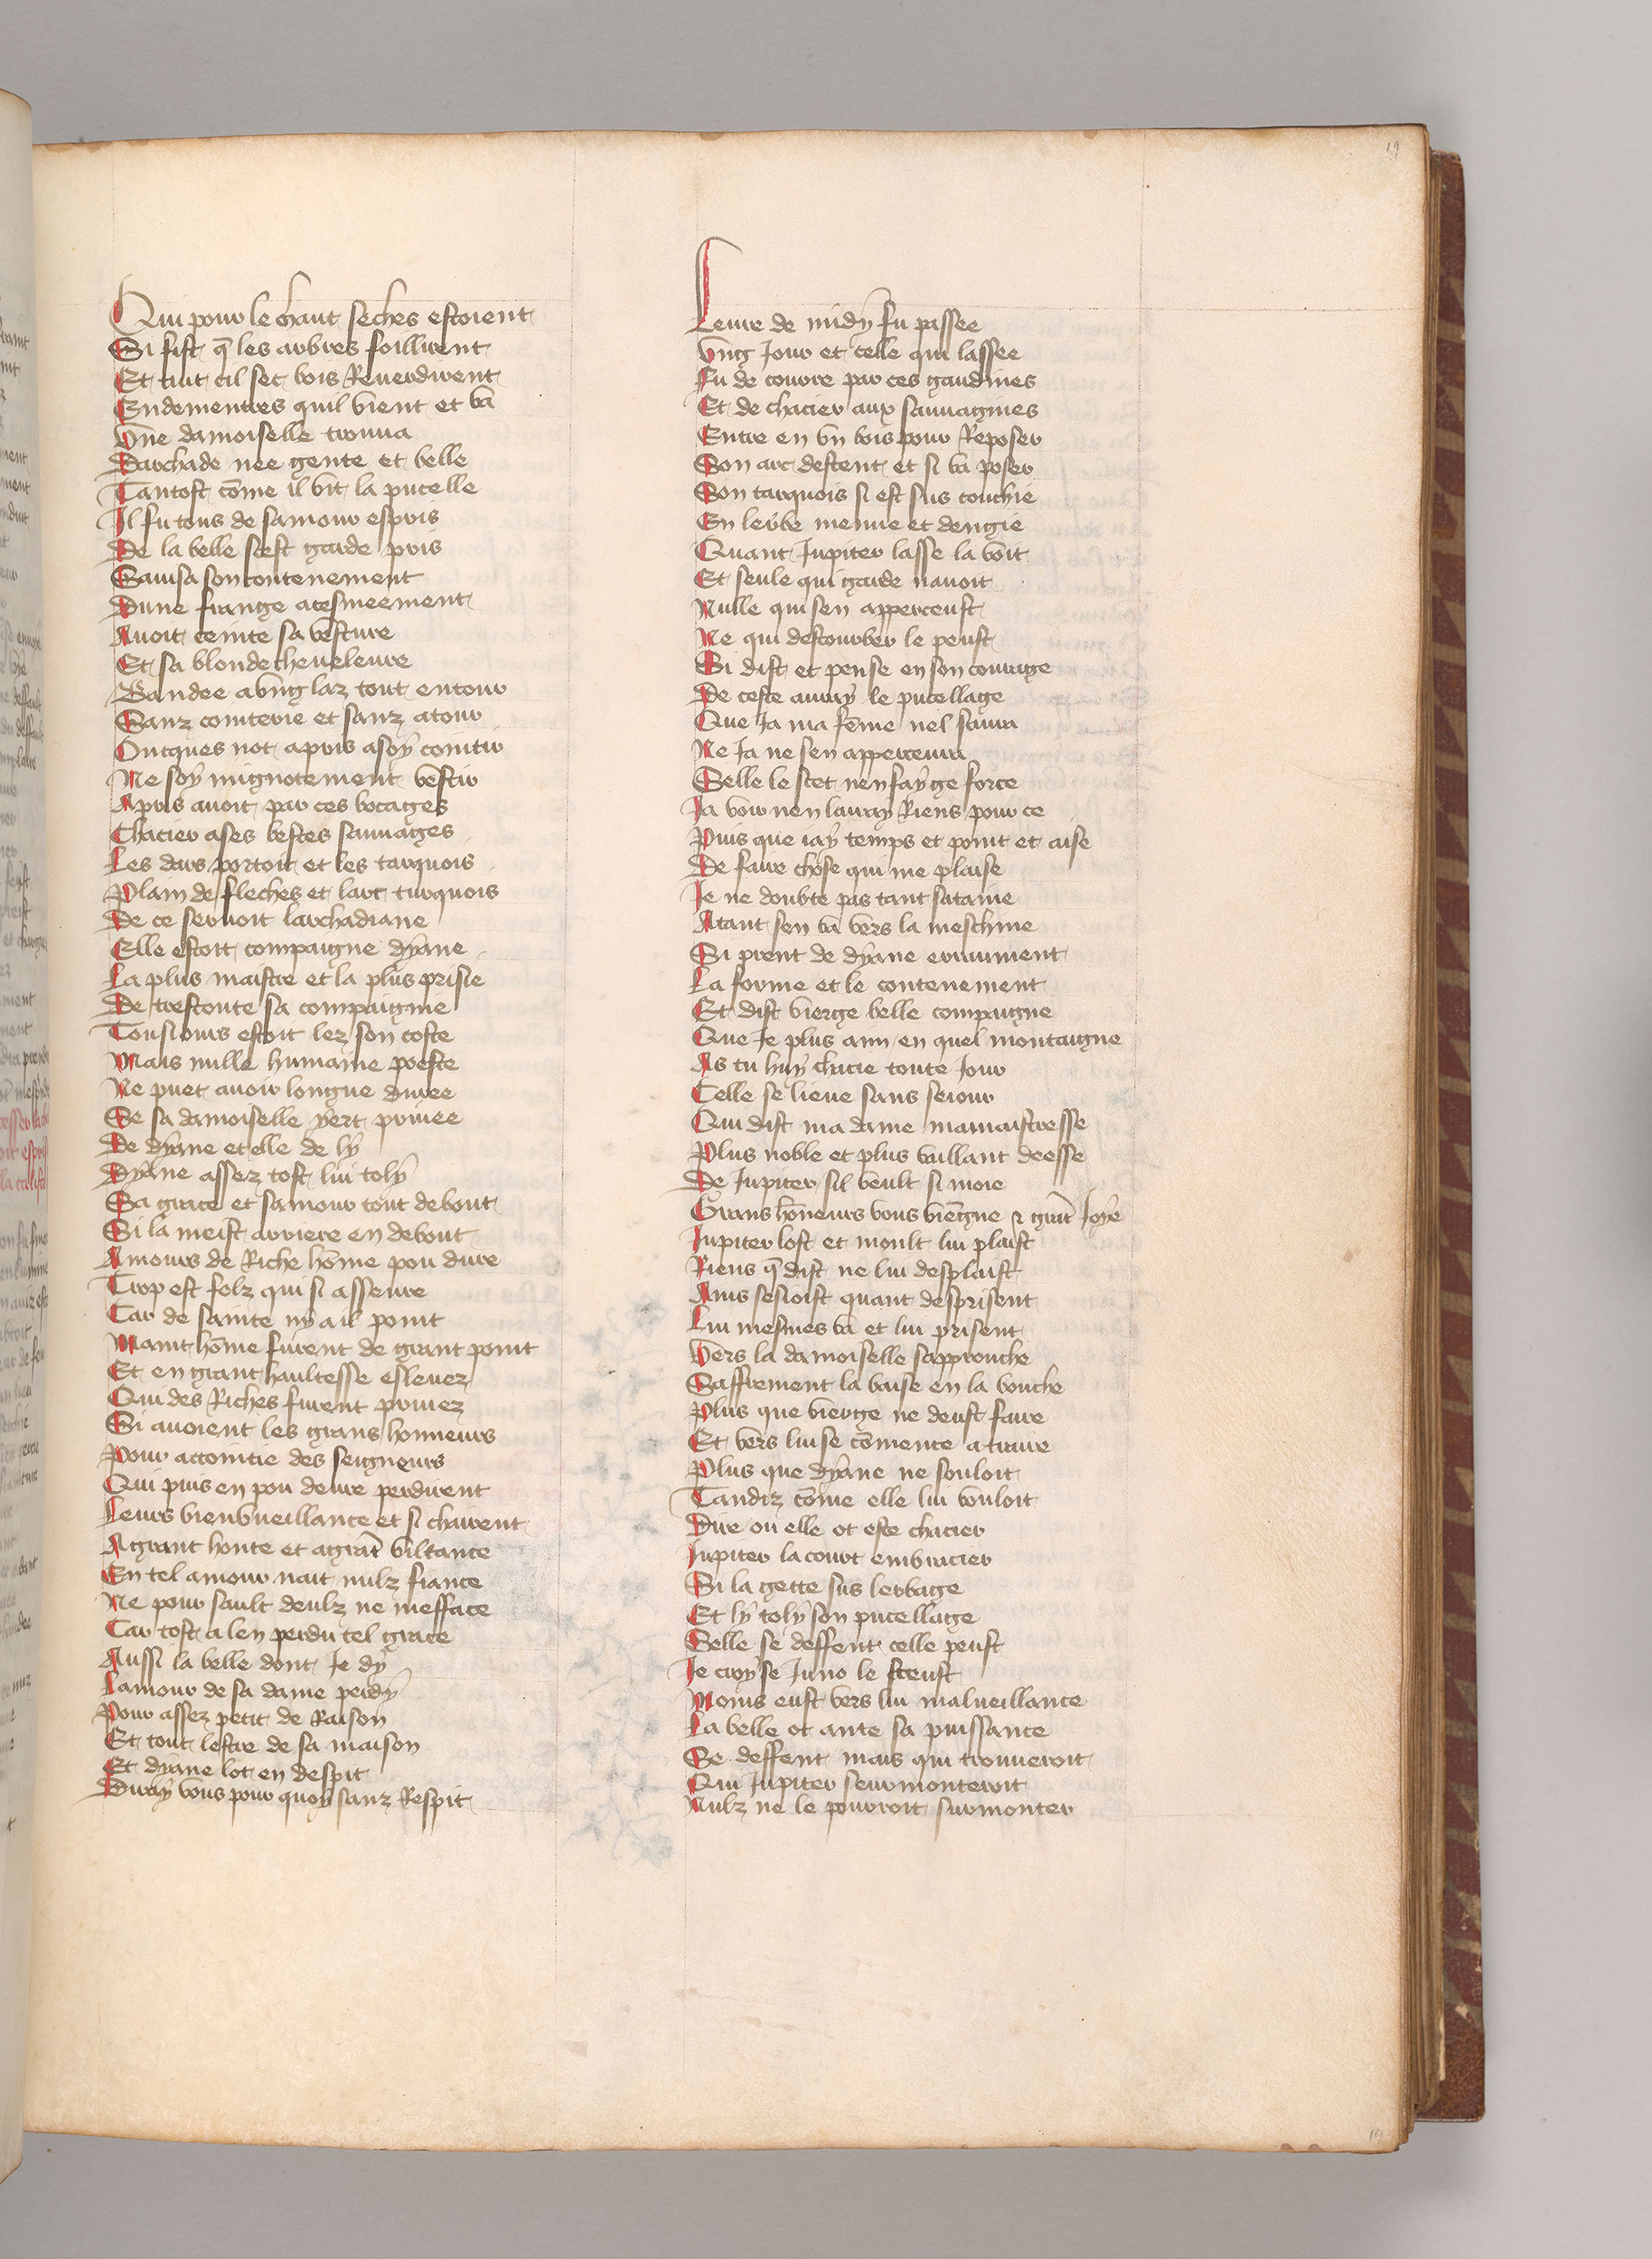 19
Qui pour le chaut seches estoient
Si fist q̃ les arbres foillirent
Et tuit cil sec bois Reuerdirent
Endementres quil vient et va
Vne damoiselle trouua
Darchade nee gente et belle
Tantost cõme il vit la pucelle
Il fu tous de samour espris
De la belle sest garde pris
Sauisa son contenement
Dune frange acesmeement
Auoit ceinte sa vesture
Et sa blonde cheueleure
Bandee a vng laz tout entour
Sanz cointerie et sanz atour
Oncques not apris a soy cointir
Ne soy mignotement vestir
Apris auoit par ces bocages
Chacier a ses bestes sauuages
Les dars portoit et les tarquois
Plain de fleches et larc turquois
De ce seruoit larchadiane
Elle estoit compaigne dyane
La plus maistre et la plus prisie
De trestoute sa compaignie
Tousiours estoit lez son coste
Mais nulle humaine poeste
Ne puet auoir longue duree
Se sa damoiselle yert priuee
De dyane et elle de ly
Dyane assez tost lui toly
Sa grace et samour tout debout
Si la meist arriere en debout
Amours de Riche hõme pou dure
Trop est folz qui si asseure
Car de sainte ny a il point
Maint hõme furent de grant point
Et en grant haultesse esleuez
Qui des Riches furent priuez
Si auoient les grans honneurs
Pour accointie des seigneurs
Qui puis en pou deure perdirent
Leurs bienvueillance et si chairent
A grant honte et a grãt viltance
En tel amour nait nulz fiance
Ne pour sault deulz ne mefface
Car tost a len perdu tel grace
Aussi la belle dont Je dy
Lamour de sa dame perdy
Pour assez petit de Raison
Et tout lestre de sa maison
Et dyane lot en despit
Diray vous pour quoy sanz Respit
Leure de midy fu passee
Vng Jour et celle qui lassee
Fu de courre par ces gaudines
Et de chacier aux sauuagines
Entre en vn bois pour Reposer
Son arc destent et si va poser
Son tarquois si est sus couchie
En lerbe menue et deugie
Quant Jupiter lasse la voit
Et seule qui garde nauoit
Nulle qui sen apperceust
Ne qui destourber le peust
Si dist et pense en son courage
De ceste auray le pucellage
Que Ja ma fẽme nel saura
Ne Ja ne sen apperceura
Selle le scet nen fay ge force
Ja voir nen lauray Riens pour ce
Puis que iay temps et point et aise
De faire chose qui me plaise
Je ne doubte pas tant sataine
Atant sen va vers la meschine
Si prent de dyane erraument
La forme et le contenement
Et dist vierge belle compaigne
Que Je plus aim en quel montaigne
As tu huy chacie toute Jour
Celle se lieue sans seiour
Qui dist ma dame ma maistresse
Plus noble et plus vaillant deesse
De Jupiter sil veult si moie
Grans hõneurs vous viẽgne & grãt Joye
Jupiter lost et moult lui plaist
Riens q̃ dist ne lui desplaist
Ains sesioist quant desprisent
Lui mesmes va et lui prisent
Vers la damoiselle sapprouche
Saffrement la baise en la bouche
Plus que vierge ne deust faire
Et vers lui se cõmence a traire
Plus que dyane ne souloit
Tandiz cõme elle lui vouloit
Dire ou elle ot este chacier
Jupiter la court embracier
Si la gette sus lerbage
Et ly toly son pucellage
Selle se deffent celle peust
Je croy se Juno le sceust
Moins eust vers lui malueillance
La belle ot ante sa puissance
Se deffent mais qui trouueroit
Qui Jupiter seurmonteroit
Nulz ne le pourroit surmonter
19